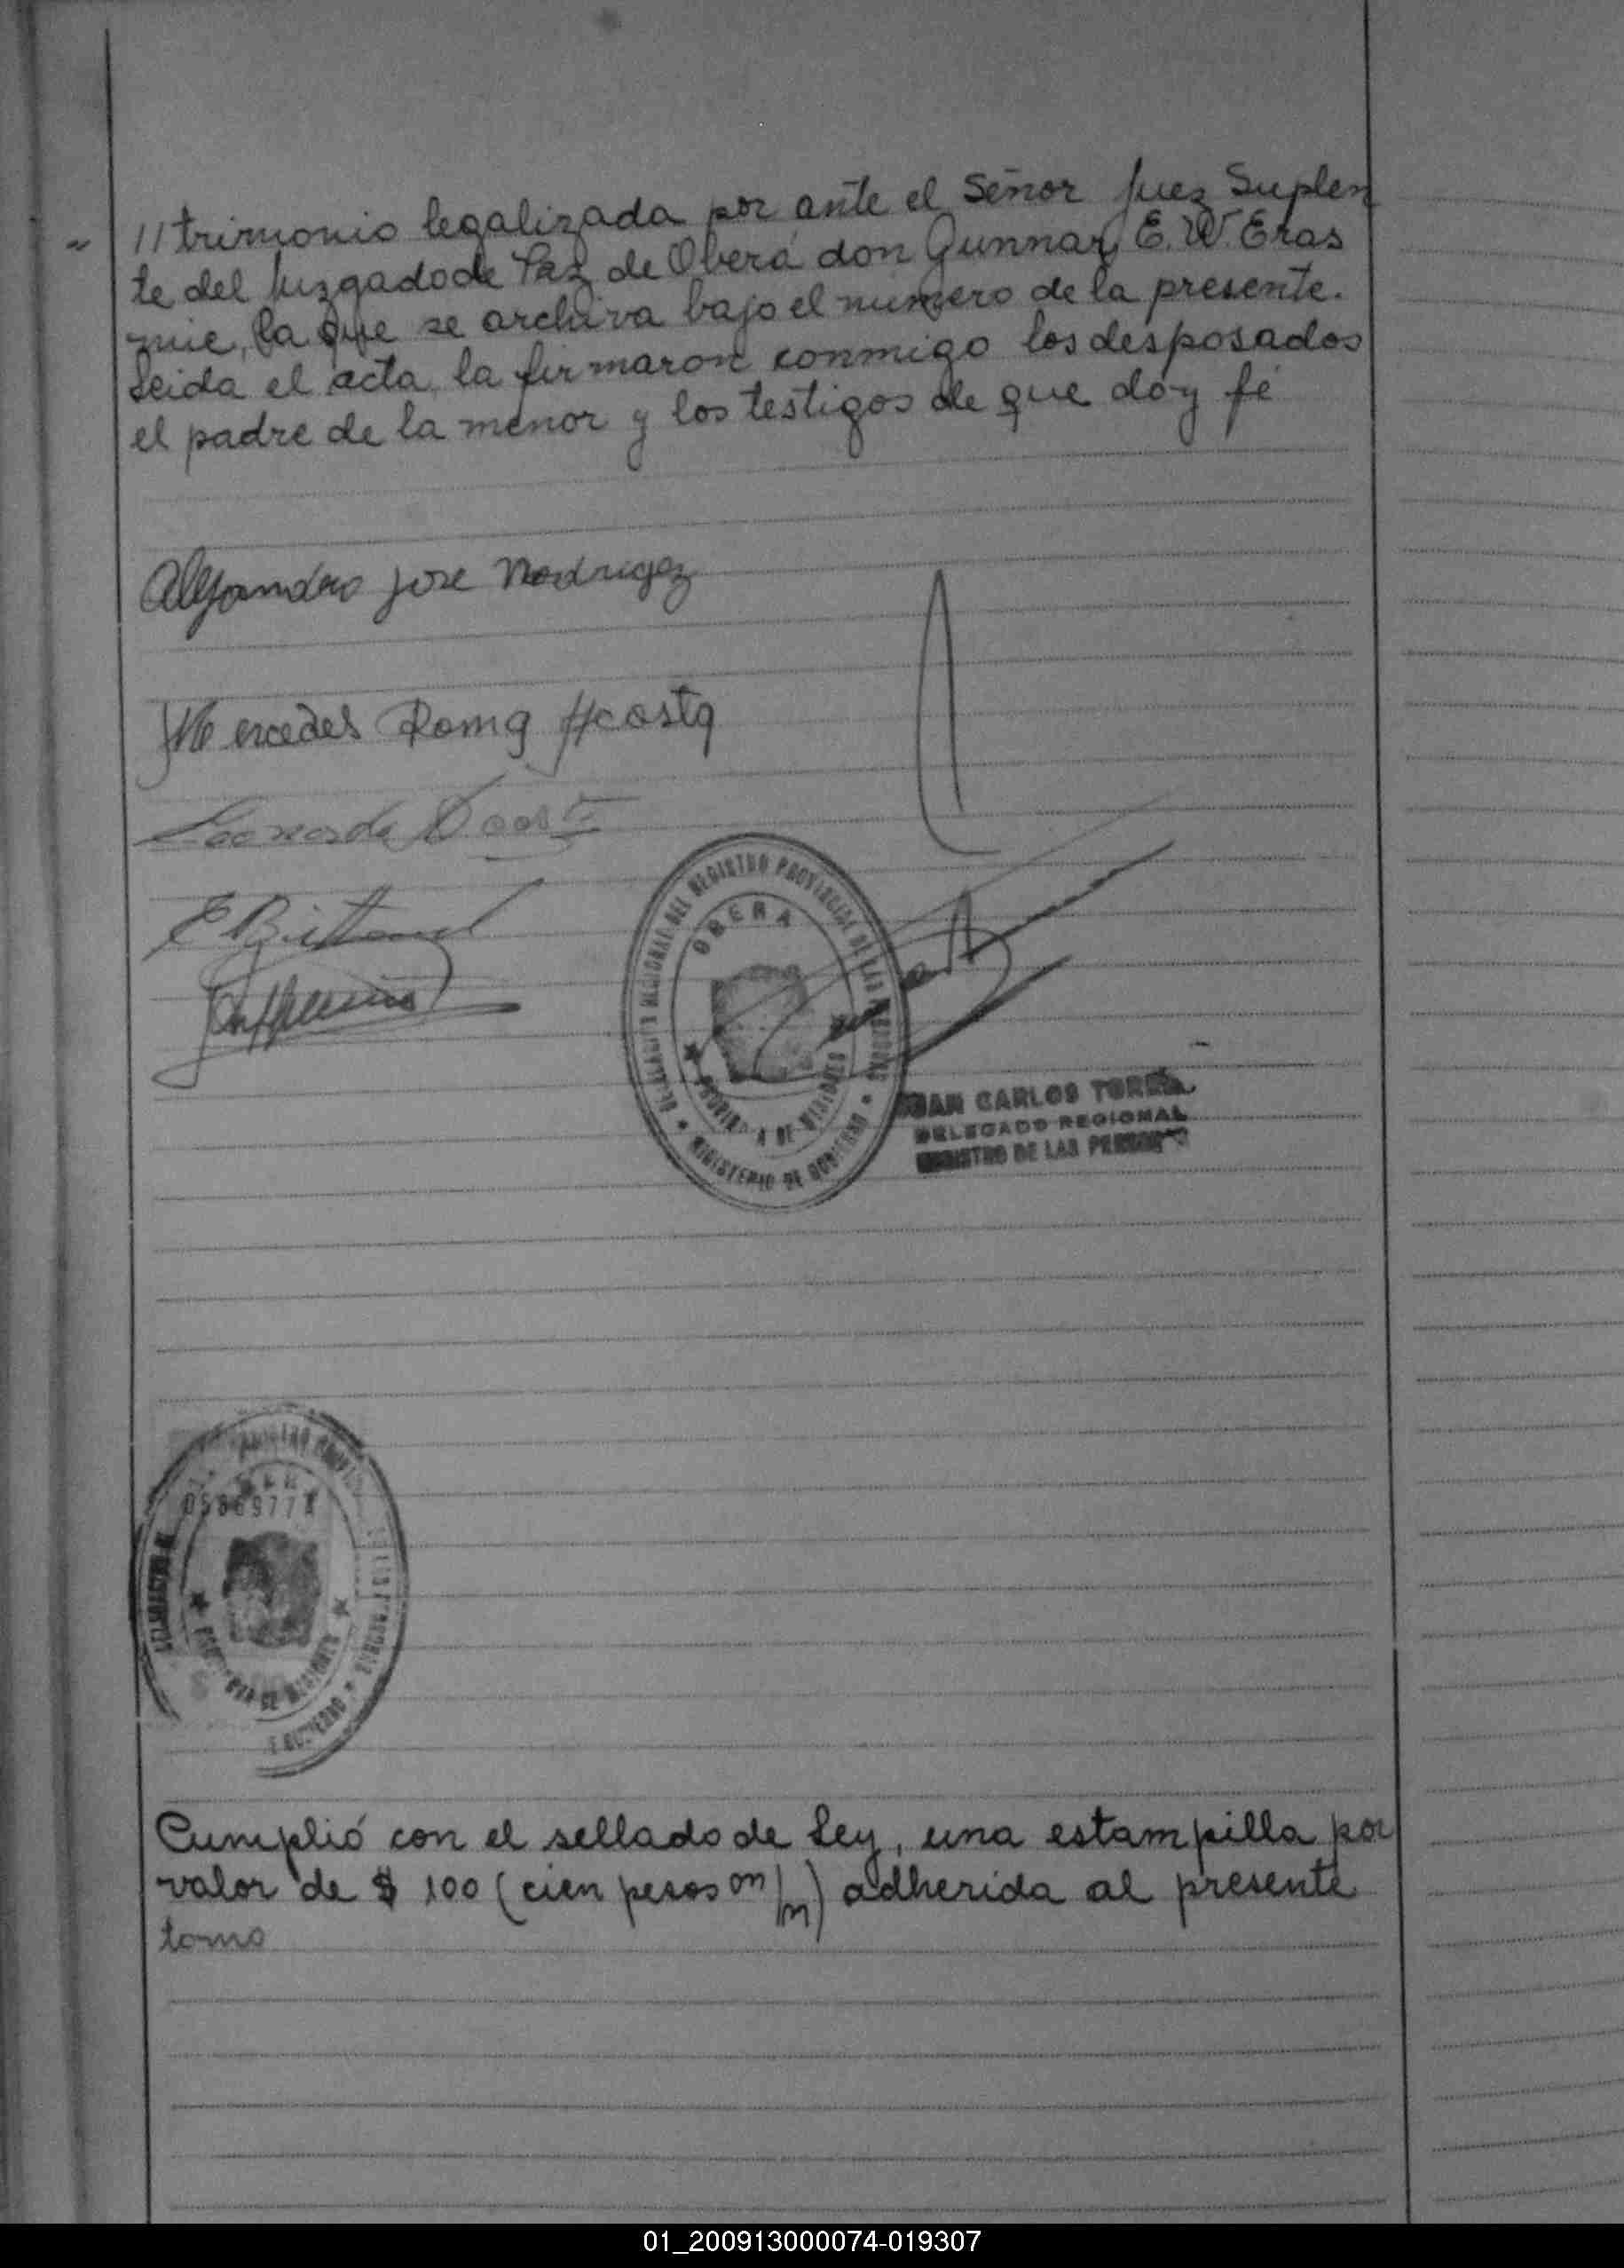 // trimonio legalizada por ante el Señor Juez Suplen
te del Juzgado de Paz de Oberá don Gunnar E. W. Eras
mie, la que se archiva bajo el número de la presente.
Leida el acta, la firmaron conmigo los desposados
el padre de la menor y los testigos de que doy fé
Alejandro Jose Rodriguez
Mercedes Roma Acosta
DELEGACION REGIONAL DEL REGISTRO PROVINCIAL DE LAS PERSONAS
OBERA
PROVINCIA DE MISIONES
MINISTERIO DE GOBIERNO
JUAN CARLOS TORRES
DELEGADO REGIONAL
REGISTRO DE LAS PERSONAS
Cumplió con el sellado de Ley, una estampilla por
valor de $ 100 (cien pesos m/n) adherida al presente
tomo
01_200913000074-019307